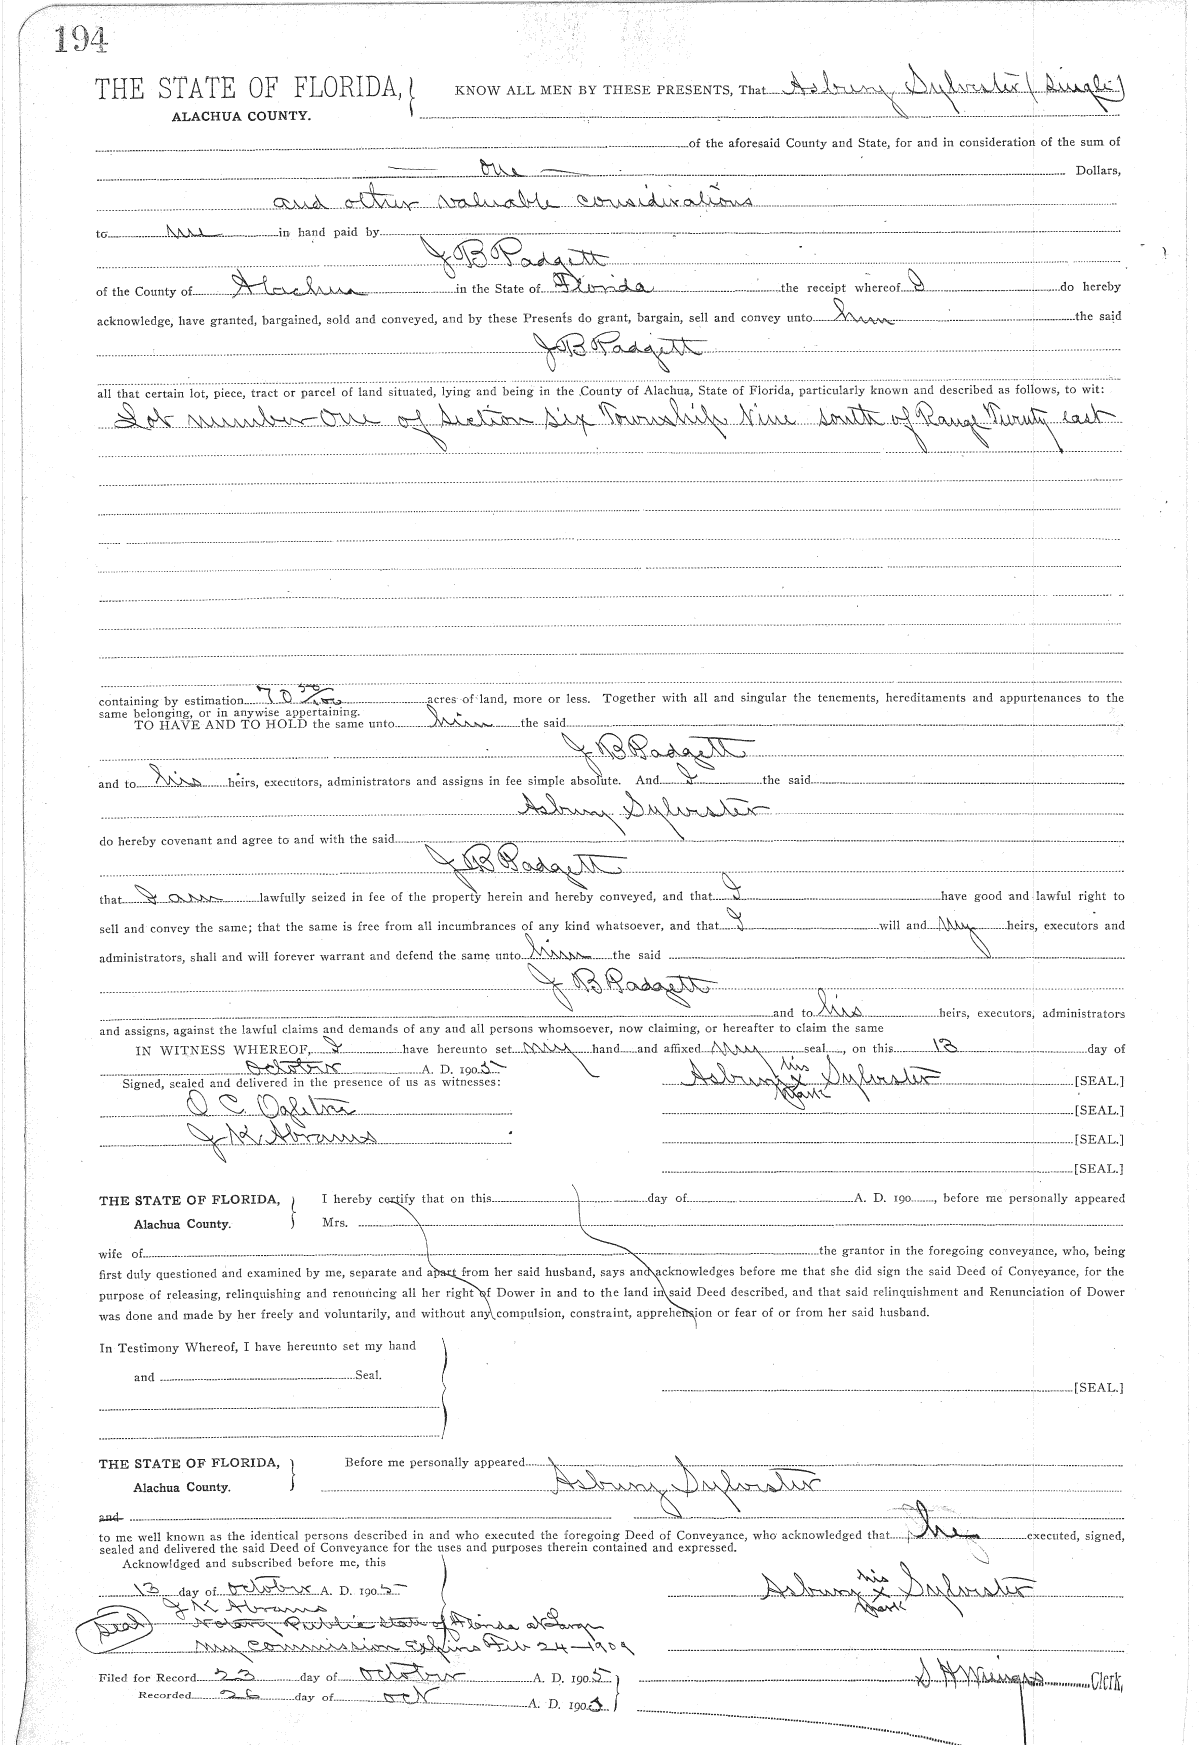 194
THE STATE OF FLORIDA, KNOW ALL MEN BY THESE PRESENTS, That Asbury Sylvester (Single)
ALACHUA COUNTY.
of the aforesaid County and State, for and in consideration of the sum of
one Dollars,
and other valuable considerations
to me in hand paid by
J B Padgett
of the County of Alachua in the State of Florida the receipt whereof I do hereby
acknowledge, have granted, bargained, sold and conveyed, and by these Presents do grant, bargain, sell and convey unto him the said
J B Padgett
all that certain lot, piece, tract or parcel of land situated, lying and being in the County of Alachua, State of Florida, particularly known and described as follows, to wit:
Lot number One of Section Six Township Nine south of Range Twenty east
containing by estimation 70 50/100 acres of land, more or less. Together with all and singular the tenements, hereditaments and appurtenances to the
same belonging, or in anywise appertaining.
TO HAVE AND TO HOLD the same unto him the said
J B Padgett
and to his heirs, executors, administrators and assigns in fee simple absolute. And I the said
Asbury Sylvester
do hereby covenant and agree to and with the said
J B Padgett
that I am lawfully seized in fee of the property herein and hereby conveyed, and that I have good and lawful right to
sell and convey the same; that the same is free from all incumbrances of any kind whatsoever, and that I will and my heirs, executors and
administrators, shall and will forever warrant and defend the same unto him the said
J B Padgett
and to his heirs, executors, administrators
and assigns, against the lawful claims and demands of any and all persons whomsoever, now claiming, or hereafter to claim the same
IN WITNESS WHEREOF, I have hereunto set my hand and affixed my seal, on this 13 day of
October A. D. 1905
his
Signed, sealed and delivered in the presence of us as witnesses: Asbury x Sylvester [SEAL.]
mark
O C [SEAL.]
J K Abrams [SEAL.]
[SEAL.]
THE STATE OF FLORIDA, I hereby certify that on this day of A. D. 190 , before me personally appeared
Alachua County. Mrs.
wife of the grantor in the foregoing conveyance, who, being
first duly questioned and examined by me, separate and apart from her said husband, says and acknowledges before me that she did sign the said Deed of Conveyance, for the
purpose of releasing, relinquishing and renouncing all her right of Dower in and to the land in said Deed described, and that said relinquishment and Renunciation of Dower
was done and made by her freely and voluntarily, and without any compulsion, constraint, apprehension or fear of or from her said husband.
In Testimony Whereof, I have hereunto set my hand
and Seal.
[SEAL.]
THE STATE OF FLORIDA, Before me personally appeared
Alachua County. Asbury Sylvester
and
to me well known as the identical persons described in and who executed the foregoing Deed of Conveyance, who acknowledged that he executed, signed,
sealed and delivered the said Deed of Conveyance for the uses and purposes therein contained and expressed.
Acknowldged and subscribed before me, this
his
13 day of October A. D. 1905 Asbury x Sylvester
mark
J K Abrams
Seal Notary Public State of Florida at Large
My Commission Expires Feb 24-1909
Filed for Record 23 day of October A. D. 1905 S H Wienges Clerk,
Recorded 26 day of Oct A. D. 1905